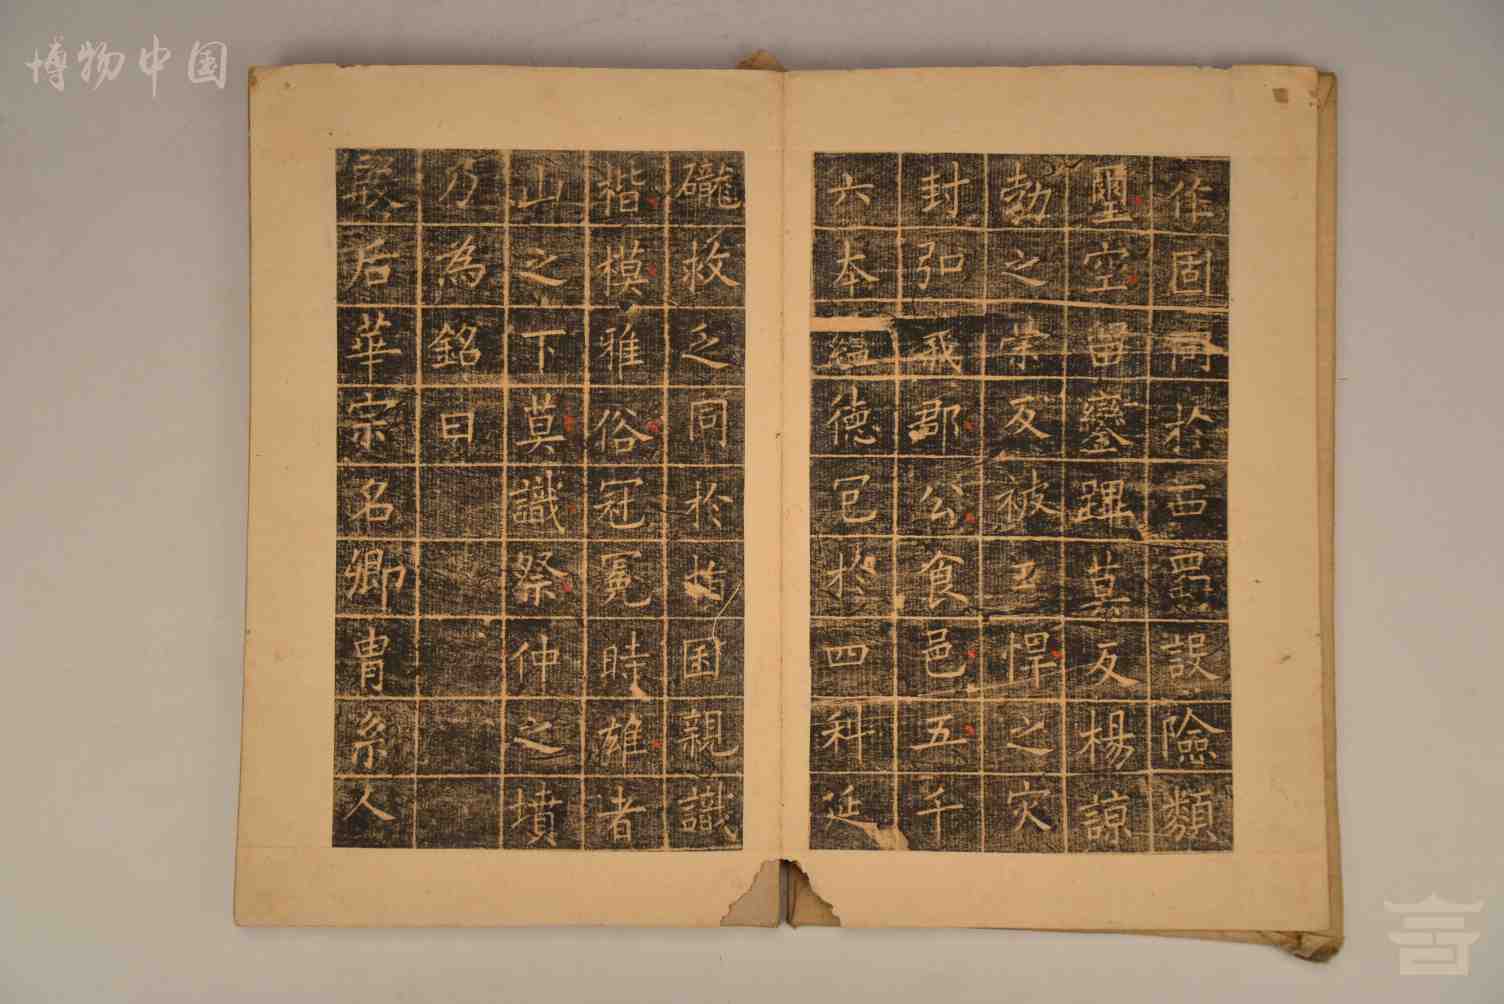 作固同於西蜀設險類
璽空留鑾蹕莫反楊諒
勃之榮反被王悍之灾
封弘義郡公食邑五千
六本蘊德包於四科延
礲救乏同於指囷親識
楷模雅俗冠冕時雄者
山之下莫識祭仲之墳
乃為銘曰
殷后華宗名卿胄系人
博物中国